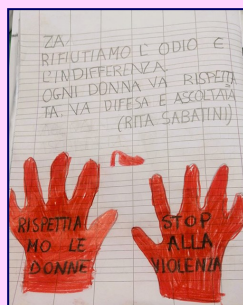 ZA.
RIFIUTIAMO L'ODIO E
L'INDIFFERENZA.
OGNI DONNA VA RISPETTA
TA, VA DIFESA E ASCOLTATA
(RITA SABATINI)
RISPETTIA
MO LE
DONNE
STOP
ALLA
VIOLENZA